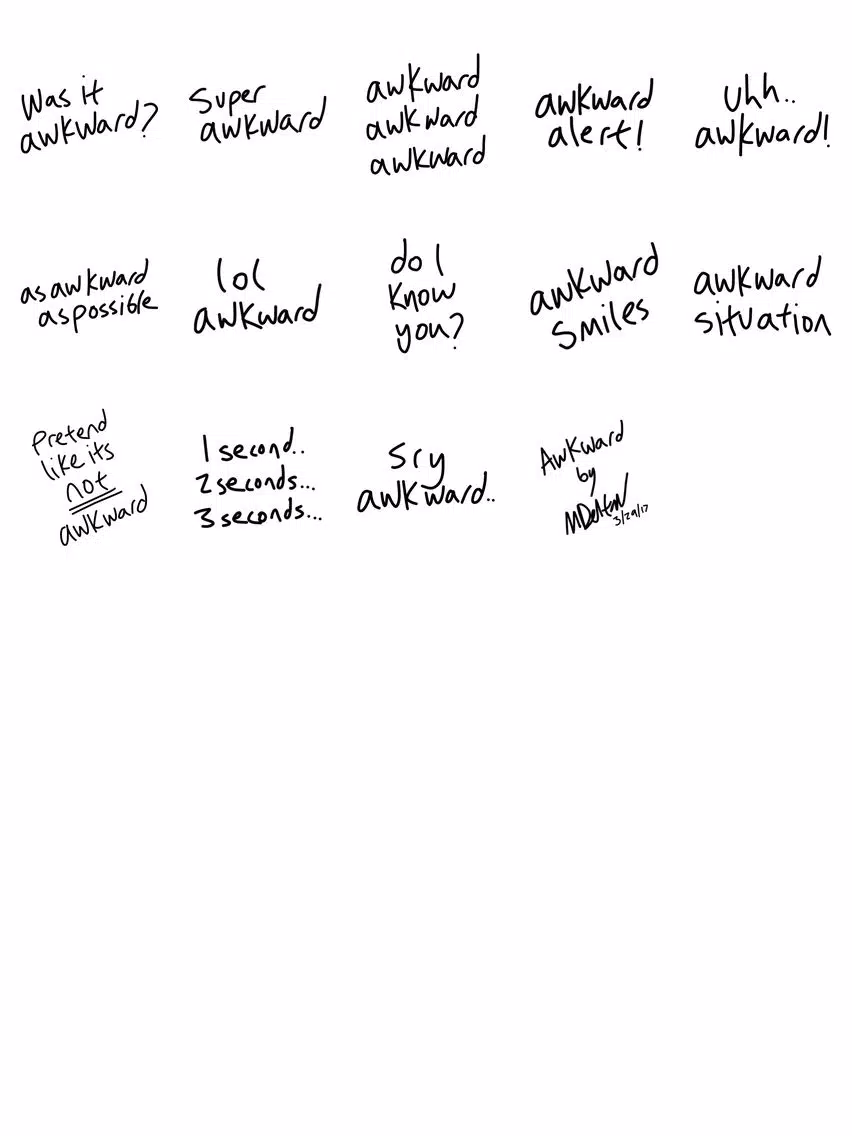 Was it
awkward?
Super
awkward
awkward
awkward
awkward
awkward
alert!
Uhh..
awkward!
as awkward
as possible
lol
awkward
do I
know
you?
awkward
smiles
awkward
situation
Pretend
like its
not
awkward
1 second..
2 seconds...
3 seconds...
Sry
awkward..
Awkward
by
3/29/17